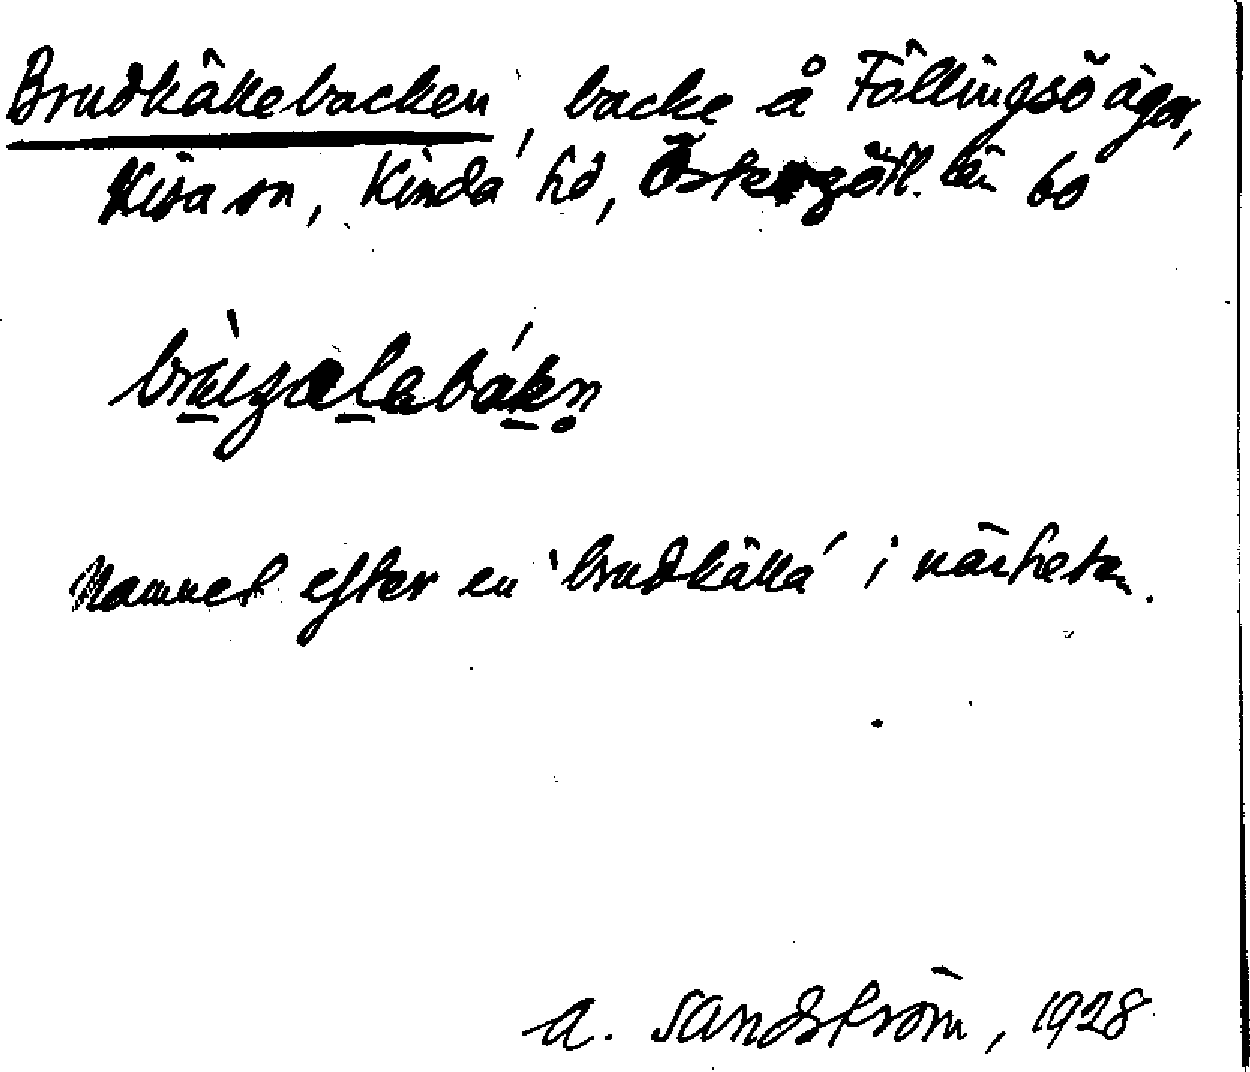 Brudkällebacken, backe å Föllingsö ägor,
Kisa sn, Kinda hd, Östergötl. län 60
Namnet efter en 'brudkälla' i närheten.
A. Sandström, 1928